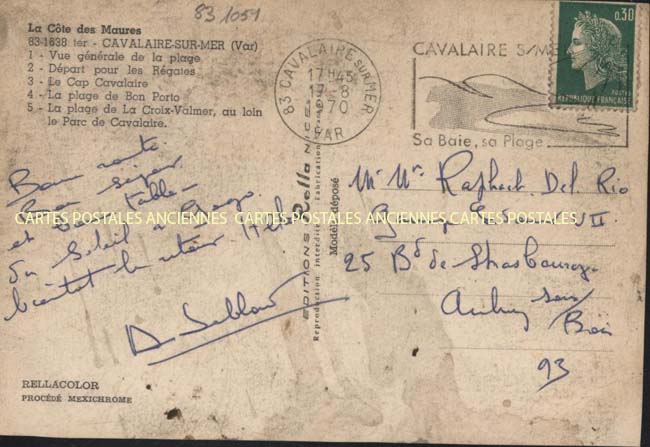 83 1051
La Côte des Maures
83-1638 ter - CAVALAIRE-SUR-MER (Var)
1 - Vue générale de la plage
2 - Départ pour les Régates
3 - Le Cap Cavalaire
4 - La plage de Bon Porto
5 - La plage de La Croix-Valmer, au loin
le Parc de Cavalaire.
83 CAVALAIRE SUR MER
17H45
17-8
1970
VAR
CAVALAIRE S/MER
Sa Baie, sa Plage
0,30
POSTES
RÉPUBLIQUE FRANÇAISE
Bonne route
Bon séjour
et bonne table
du Soleil
bientôt le retour
EDITIONS
Reproduction interdite Fabrication
Modèle déposé
Mr Mme Raphael Del Rio
25 Bd de Strasbourg
Aulnay sous
Bois
93
CARTES POSTALES ANCIENNES CARTES POSTALES ANCIENNES CARTES POSTALES ANCIENNES
RELLACOLOR
PROCÉDÉ MEXICHROME